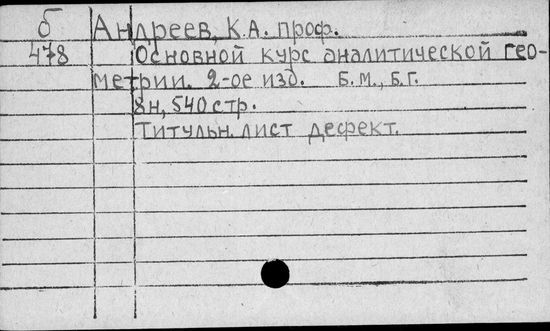 б Андреев, К.А. проф.
478 Основной курс аналитической гео-
метрии. 2-ое изд. Б.М., Б.Г.
8н, 540 стр.
Титульн. лист дефект.